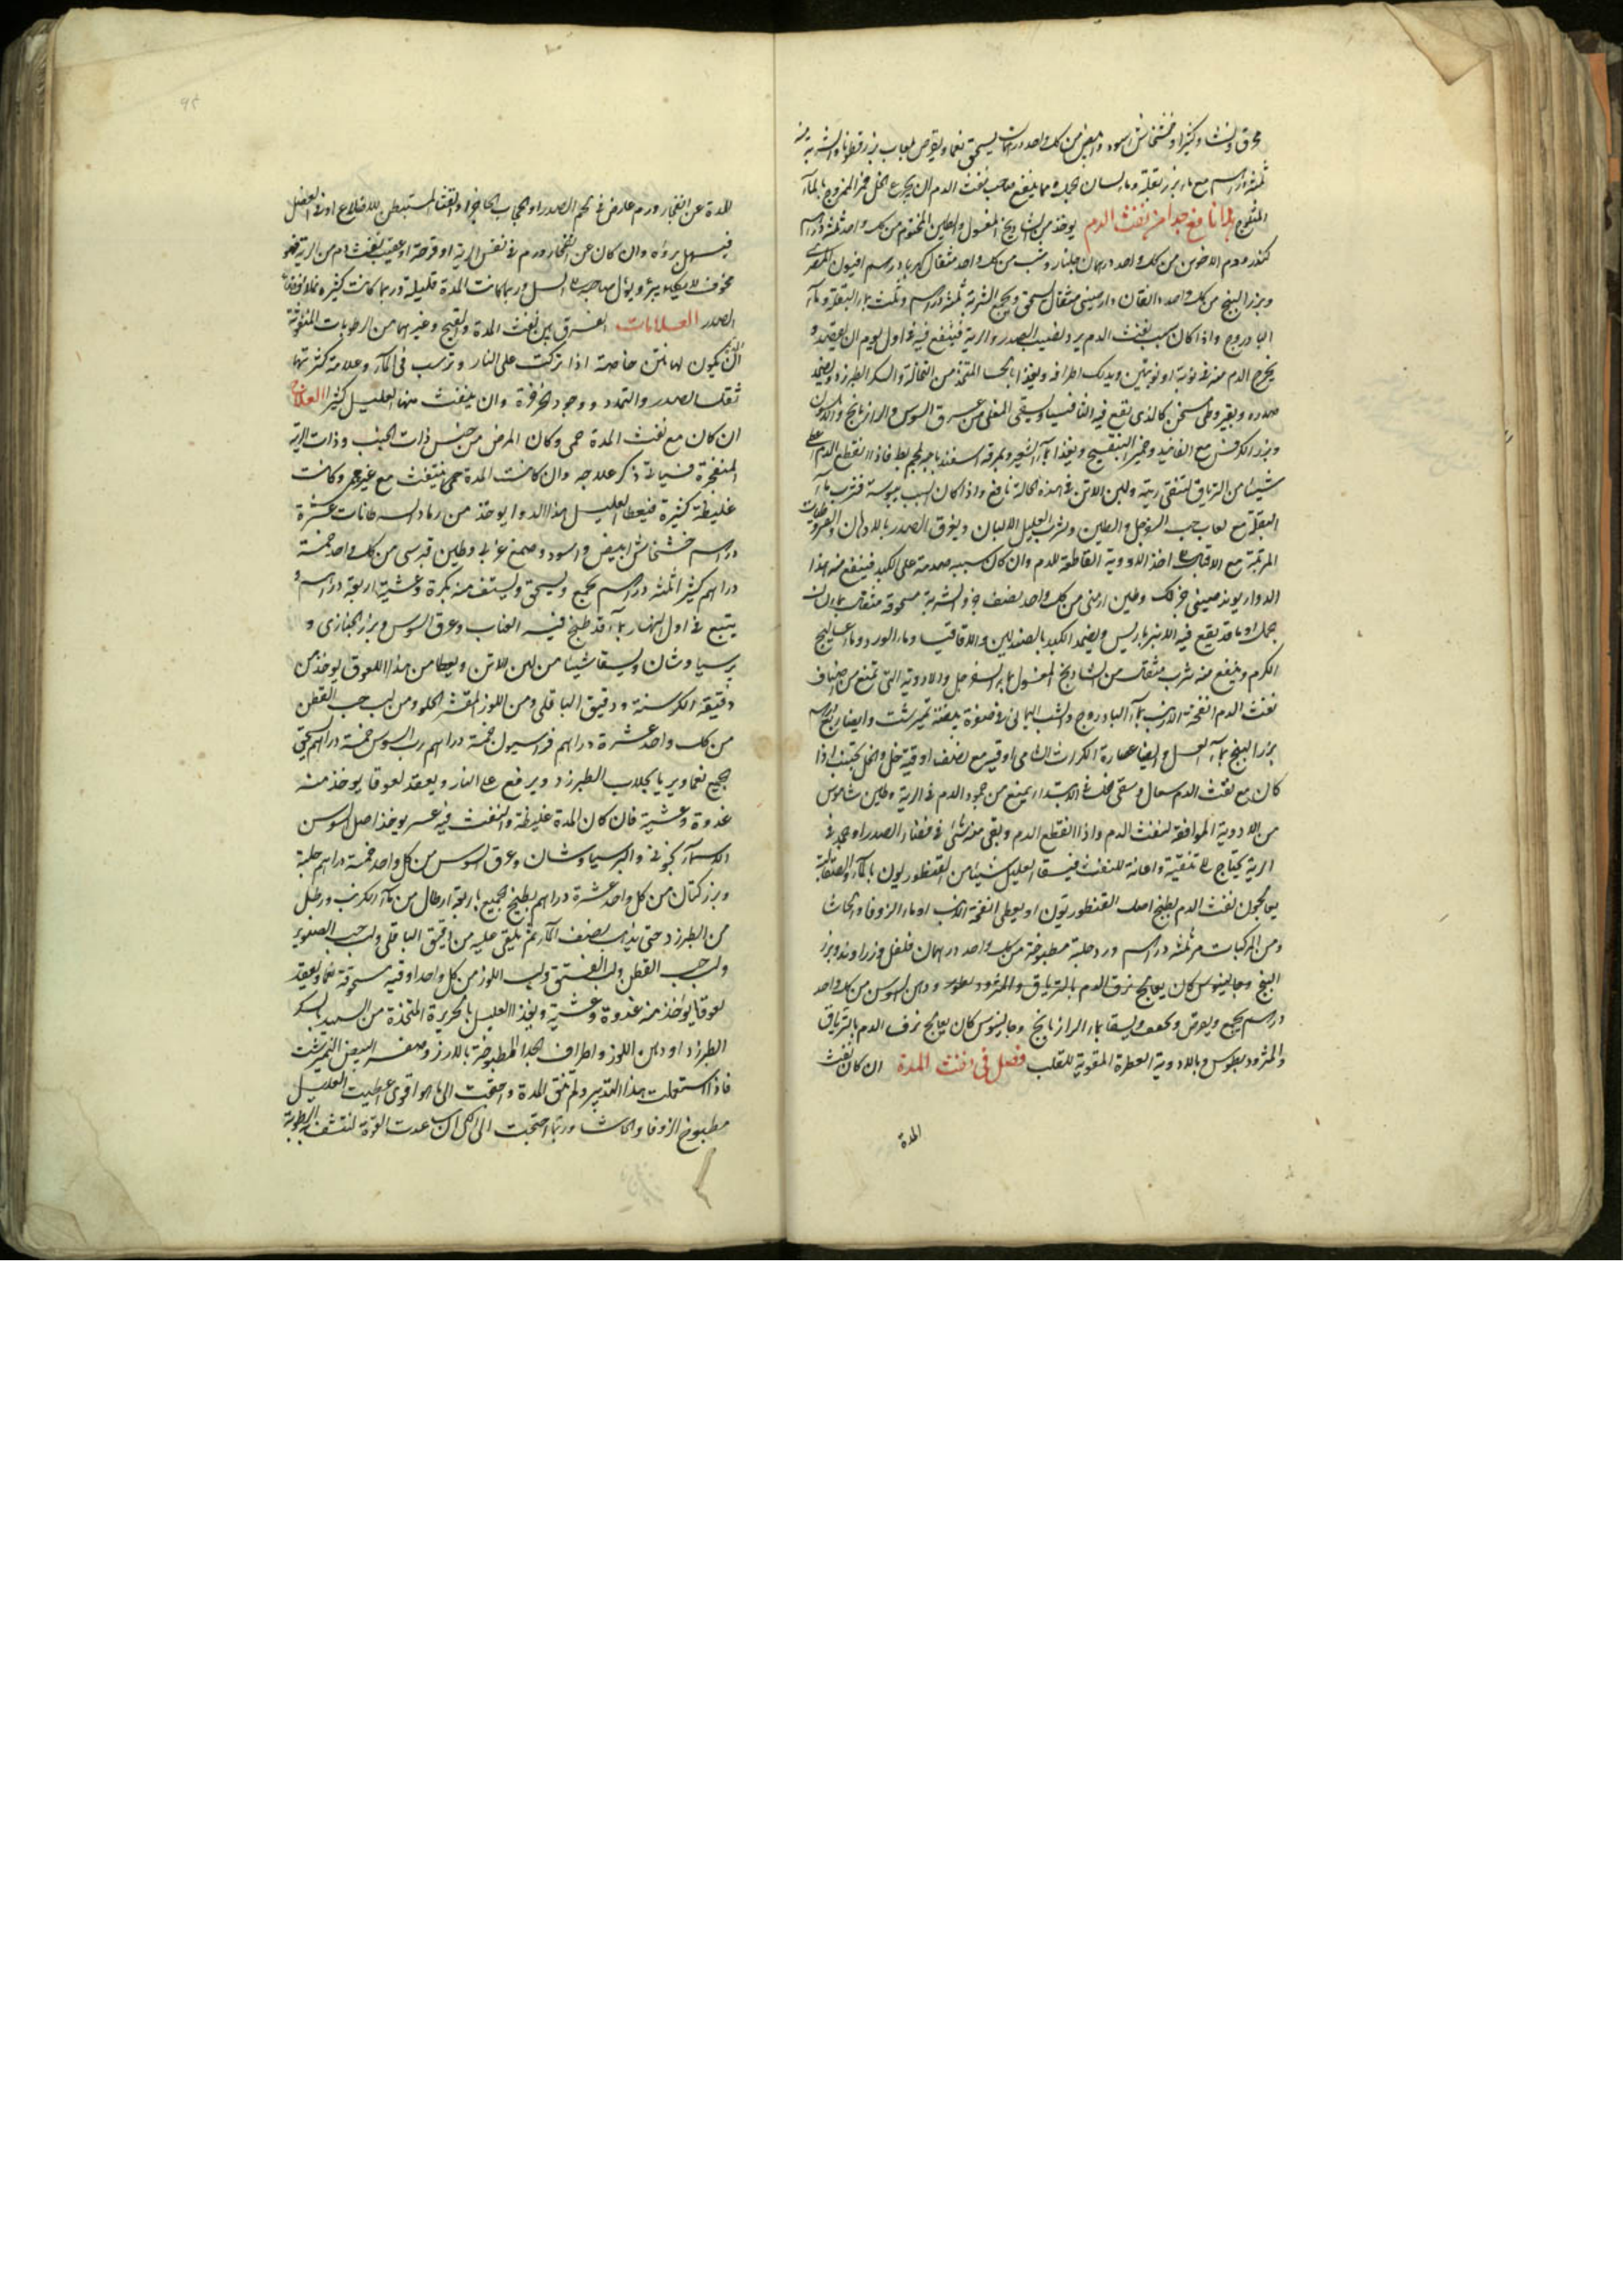 محرق ونشا وكثيرا وخشخاش اسود وابيض من كل واحد درهمان يسحق نعما ويقرص بلعاب بزر قطونا والشربة منه
ثلثة دراهم مع ماء بزر بقلة وماء لسان الحمل ومما ينفع صاحب نفث الدم ان يجرع الخل خمر الممزوج بالماء
المثلوج نافع جدا من نفث الدم يوخذ من الشاديخ المغسول والطين المختوم من كل واحد ثلثة دراهم
كندر ودم الاخوين من كل واحد درهمان جلنار وشب من كل واحد مثقال كهربا درهم افيون المصرى
وبزر البنج من كل واحد دانقان دارصينى مثقال يسحق الجميع الشربة ثلثة دراهم وثلث بماء البقلة وماء
البادروج واذا كان سبب نفث الدم برد يصيب الصدر والرية فينفع فيه فى اول يوم ان يفصد و
يخرج الدم منه فى نوبة او نوبتين ويدلك اطرافه ويغذا بالحسا المتخذ من النخالة والسكر الطبرزد ويضمد
صدره وبقيروطى مسخن كالذى تقع فيه الثافسيا ويسقى المغلى من عرق السوس والرازيانج والكمون
وبزر الكرفس مع الفانيد وخمير البنفسج ويغذا بماء الشعير وبمرقة اسفندباجة لحم بط فاذا انقطع الدم اعطى
شيئا من الترياق لتنقى ريته ولبن الاتن فى هذه الحالة نافع واذا كان السبب يبوسة فشرب ماء
البقلة مع لعاب حب السفرجل والطين وشرب العليل الالبان ويغرق الصدر بالادهان والقيروطيات
المرتبة مع الاقاقيا اخذ الادوية القاطعة للدم وان كان سببه صدمة على الكبد فينفع منه هذا
الدواء ريوند صينى جزء لك وطين ارمنى من كل واحد نصف جزء والشربة مسحوقة مثقال بماء لسان
حمل او ماء قد يقع فيه الانبرباريس ويضمد الكبد بالصندلين والاقاقيا وماء الورد وماء عساليج
الكرم وينفع منه شرب مثقال من الشاديخ المغسول بماء السفرجل والادوية التى تمنع من اصناف
نفث الدم انفحة الارنب بماء البادروج والشب اليمانى فى صفرة بيضة نيمبرشت وايضا ربع درهم
بزر البنج بماء العسل وايضا عصارة الكراث الشامى اوقية مع نصف اوقية خل والخل يجتنب اذا
كان مع نفث الدم سعال وسقى الخل فى الابتداء يمنع من جمود الدم فى الرية وطين شاموس
من الادوية الموافقة لنفث الدم واذا انقطع الدم وبقى منه شئ فى فضاء الصدر او جمد فى
الرية يحتاج الى تنقية واعانة للنفث فيسقا العليل شيئا من القنطوريون بالماء والصقالبة
يعالجون نفث الدم بطبخ اصل القنطوريون او يعطى انفحة ارنب او ماء الزوفا والحاشا
ومن المركبات مر ثلثه دراهم ورد حلبة مطبوخة من كل واحد درهمان فلفل وزراوند وبزر
البنج وجالينوس كان يعالج نزف الدم بالترياق والمثروديطوس ودهن السوسن من كل واحد
درهم يجمع ويقرص ويجفف ويسقا بماء الرازيانج وجالينوس كان يعالج نزف الدم بالترياق
والمثروديطوس وبالادوية العطرة المقوية للقلب فصل فى نفث المدة ان كان نفث
المدة
المدة عن انفجار ورم عارض فى لحم الصدر او الحجاب الحاجز او الغشا المستبطن للاضلاع او فى العضل
فيسهل بروه وان كان عن انفجار ورم فى نفس الرية او قرحة او عقيب نفث دم من الرية فهو
مخوف لا يكاد يبرؤ ويؤل صاحبه الى السل وربما كانت المدة قليلة وربما كانت كثيرة تملا فضاء
الصدر العلامات الفرق بين نفث المدة والقيح وغيرهما من الرطوبات المنفوثة
ان يكون لها نتن خاصة اذا تركت على النار وترسب فى الماء وعلامة كثرتها
ثقل الصدر والتمدد ووجود الخرخرة وان ينفث منها العليل كثيرا العلاج
ان كان مع نفث المدة حمى وكان المرض من جنس ذات الجنب وذات الرية
المنفجرة فسياتى ذكر علاجه وان كانت المدة تنفث مع غير حمى وكانت
غليظة كثيرة فيعطا العليل هذا الدوا يوخذ من رماد السرطانات عشرة
دراهم خشخاش ابيض واسود وصمغ عربى وطين قبرسى من كل واحد خمسة
دراهم كثيرا ثلثه دراهم يجمع ويسحق ويستف منه بكرة وعشية اربعة دراهم و
يتبع فى اول النهار بماء قد طبخ فيه العناب وعرق السوس وبزر الخبازى و
برسياوشان ويسقا شيئا من لبن الاتن ويعطا من هذا اللعوق يوخذ من
دقيقه الكرسنة ودقيق الباقلى ومن اللوز المقشر الحلو ومن لب حب القطن
من كل واحد عشرة دراهم فراسيون خمسة دراهم رب السوس خمسة دراهم يسحق
جميع نعما ويربا بجلاب الطبرزد ويرفع على النار ويعقد لعوقا يوخذ منه
غدوة وعشية فان كان المدة غليظة والنفث فيه عسر يوخذ اصل السوسن
الاسمانجونى والبرسياوشان وعرق السوس من كل واحد خمسة دراهم حلبة
وبزر كتان من كل واحد عشرة دراهم يطبخ الجميع باربعة ارطال من ماء الكرنب ورطل
من الطبرزد حتى يذهب نصف الماء ثم يلقى عليه من دقيق الباقلى ولب حب الصنوبر
ولب حب القطن ولب الفستق ولب اللوز من كل واحد اوقية مسحوقة نعما ويعقد
لعوقا يؤخذ منه غدوة وعشية ويغذا العليل بالحريرة المتخذة من السميد بالسكر
الطبرزد او دهن اللوز واطراف الجدا المطبوخة بالارز وصفرة البيض النيمبرشت
فاذا استعملت هذا التدبير ولم تنق المدة واحتجت الى ما هو اقوى اعطيت العليل
مطبوخ الزوفا والحاشا وربما احتجت الى الكى ان ساعدت القوة لتنشف الرطوبة